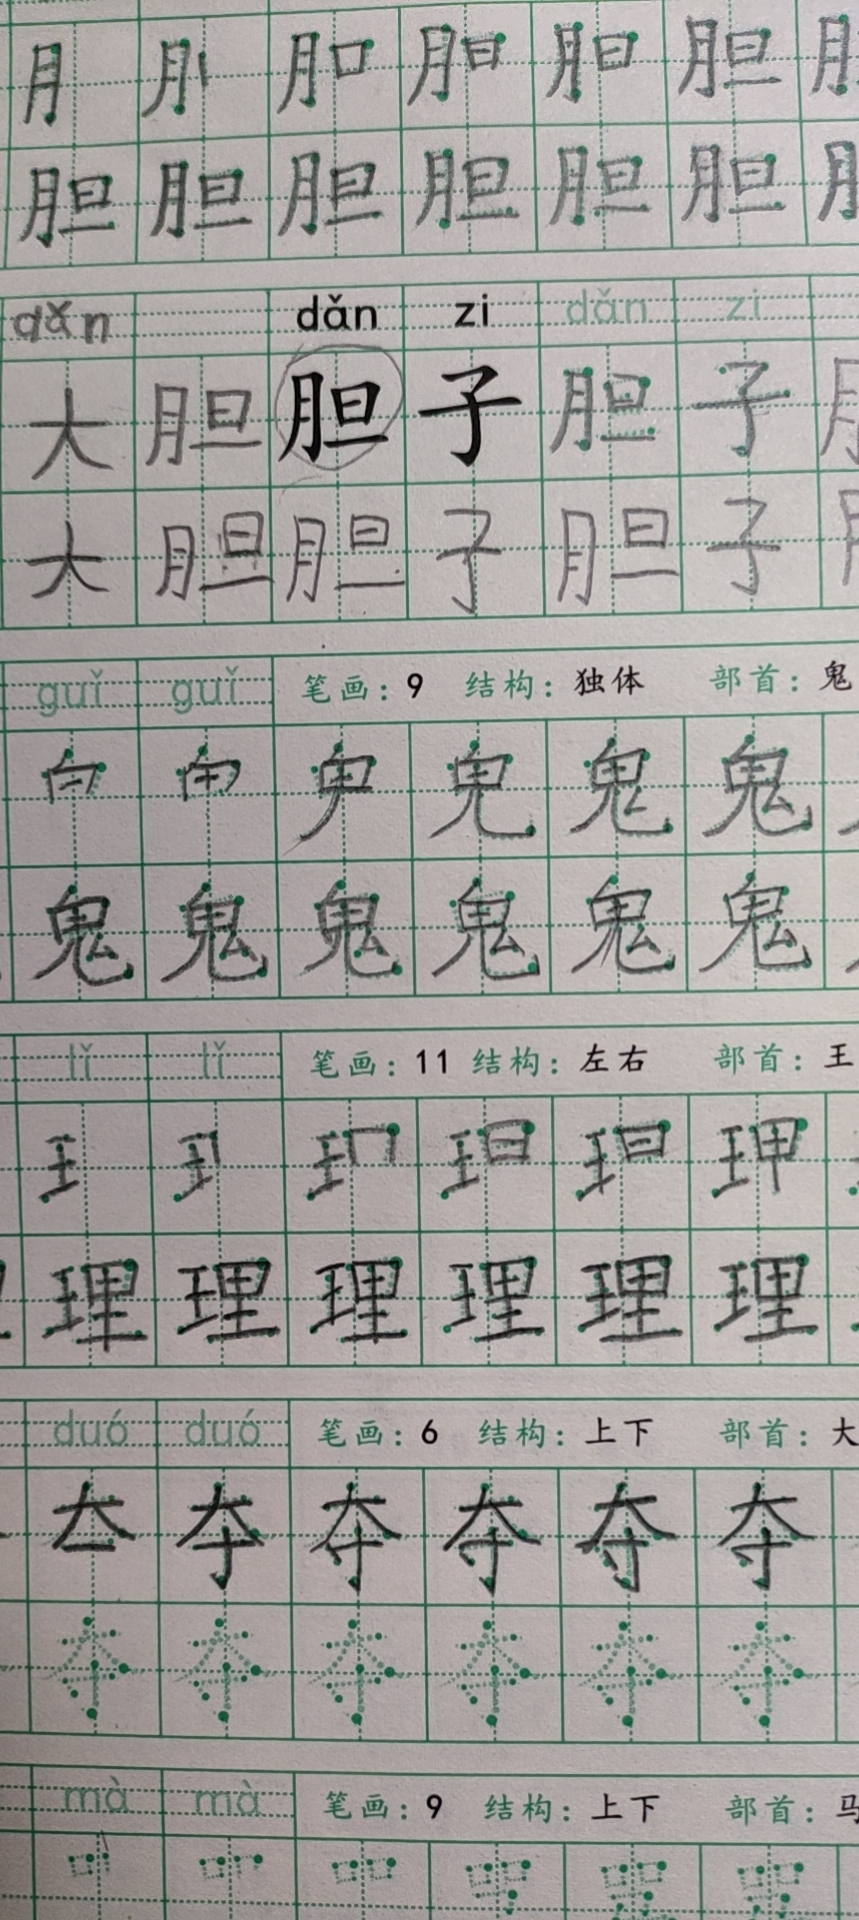 月 刖 胆 胆
胆 胆 胆 胆 胆 胆
dǎn dǎn zi dǎn zi
大 胆 胆 子 胆 子
大 胆 胆 子 胆 子
guǐ guǐ 笔画：9 结构：独体 部首：鬼
白 鬼 鬼
鬼 鬼 鬼 鬼 鬼 鬼
lǐ lǐ 笔画：11 结构：左右 部首：王
王 玾
理 理 理 理 理 理
duó duó 笔画：6 结构：上下 部首：大
夺 夺 夺 夺
夺 夺 夺 夺 夺 夺
mà mà 笔画：9 结构：上下 部首：马